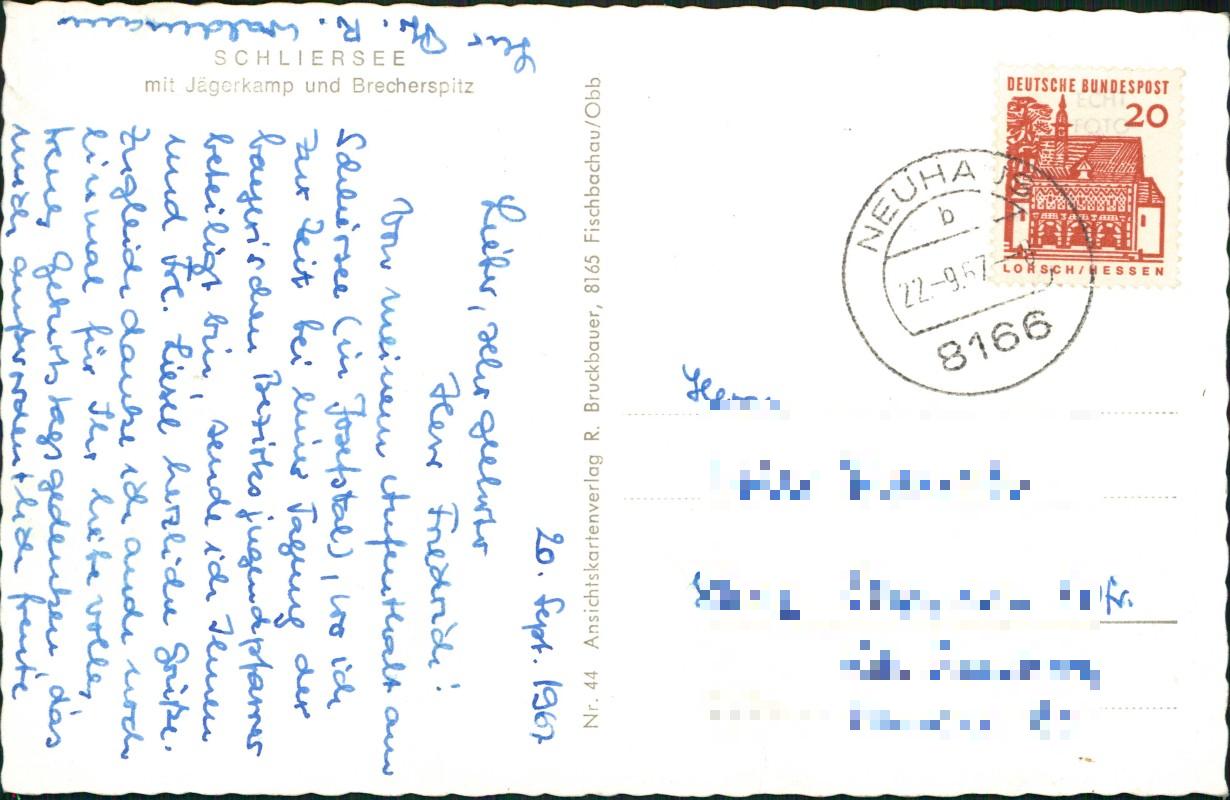 SCHLIERSEE
mit Jägerkamp und Brecherspitz
20. Sept. 1967
Lieber, sehr geehrter
Herr Friedrich!
Von meinem Aufenthalt am
Schliersee (in Josefstal), wo ich
zur Zeit bei einer Tagung der
bayerischen Bezirksjugendpfarrer
beteiligt bin, sende ich Ihnen
und Frl. Liesel herzliche Grüße.
Zugleich danke ich auch noch
einmal für Ihr liebevolles,
treues Geburtstagsgedenken, das
mich außerordentlich freute
Ihr Pfr. R.
Nr. 44 Ansichtskartenverlag R. Bruckbauer, 8165 Fischbachau/Obb
DEUTSCHE BUNDESPOST
20
ECHT
FOTO
LORSCH/HESSEN
NEUHAUS
b
22.-9.67
8166
Herrn